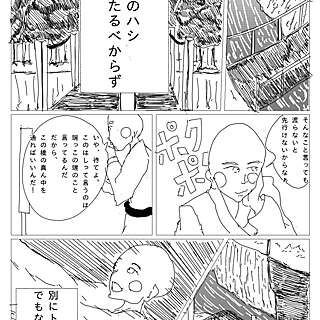 のハシ
たるべからず
そんなこと言っても
渡らないと
先行けないからなぁ
ポクポク
いや、待てよ。
このはしって言うのは
端っこの端のこと
言ってるんだ
だから、
この橋の真ん中を
通ればいいんだ!
別にト
でもな